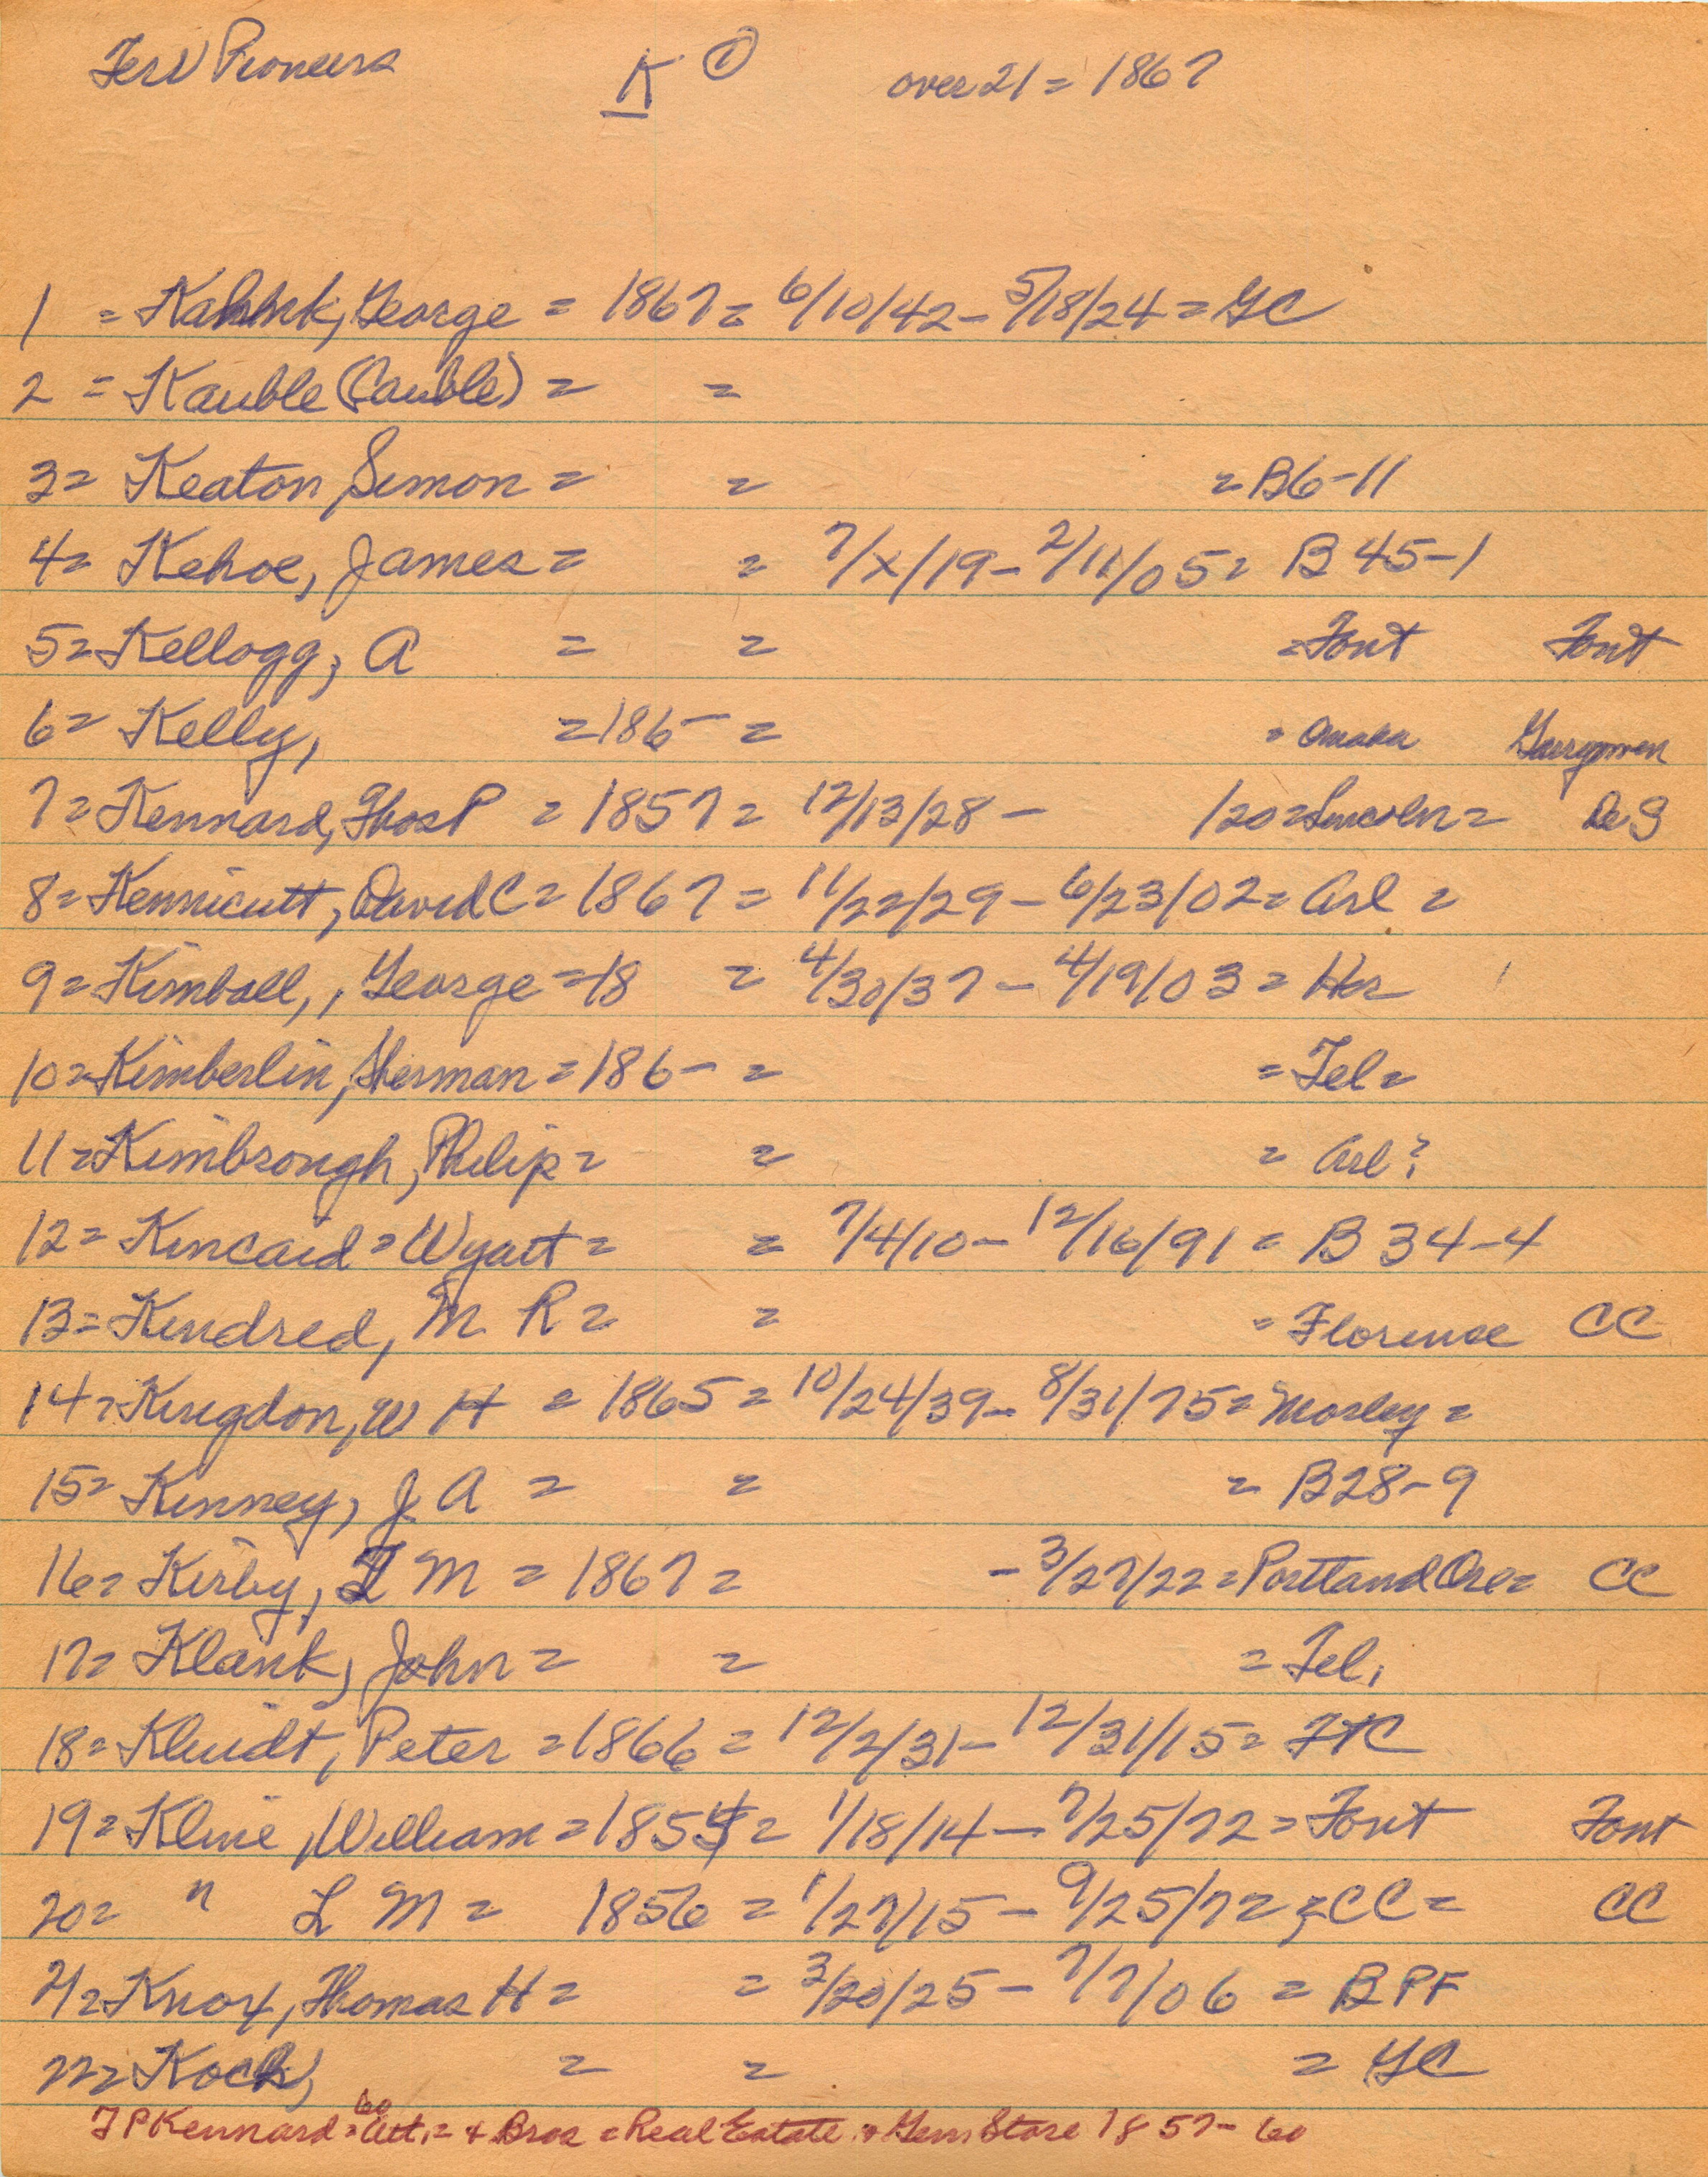 Terr Pioneers K ① over 21 = 1867
1 = Kahnk, George = 1867 = 6/10/42 - 5/18/24 = GC
2 = Kauble (Cauble) = =
3 = Keaton, Simon = = = B6-11
4 = Kehoe, James = = 7/x/19 - 2/11/05 = B 45-1
5 = Kellogg, A = = = Font Font
6 = Kelly, = 186- = = Omaha
7 = Kennard, Thos P = 1857 = 12/13/28 - /20 = Lincoln = DeS
8 = Kennicutt, David C = 1867 = 11/22/29 - 6/23/02 = Arl =
9 = Kimball, , George = 18 = 4/30/37 - 4/19/03 = Her
10 = Kimberlin, Sherman = 186- = = Tel =
11 = Kimbrough, Philip = = = Arl ?
12 = Kincaid = Wyatt = = 7/4/10 - 12/16/91 = B 34-4
13 = Kendred, M R = = = Florence CC
14 = Kingdon, W H = 1865 = 10/24/39 - 8/31/75 = Morley =
15 = Kinney, J A = = = B28-9
16 = Kirby, M = 1867 = - 3/27/22 = Portland Ore = CC
17 = Klank, John = = = Tel.
18 = Kluidt, Peter = 1866 = 12/2/31 - 12/31/15 = FTC
19 = Kline, William = 185 = 1/18/14 - 7/25/72 = Font Font
20 = " L M = 1856 = 1/27/15 - 9/25/72 = CC = CC
21 = Knox, Thomas H = = 3/20/25 - 7/7/06 = B PF
22 = Koch, = = = GC
T P Kennard = 60 Att. = + Bros = Real Estate = Gem Store 1857-60